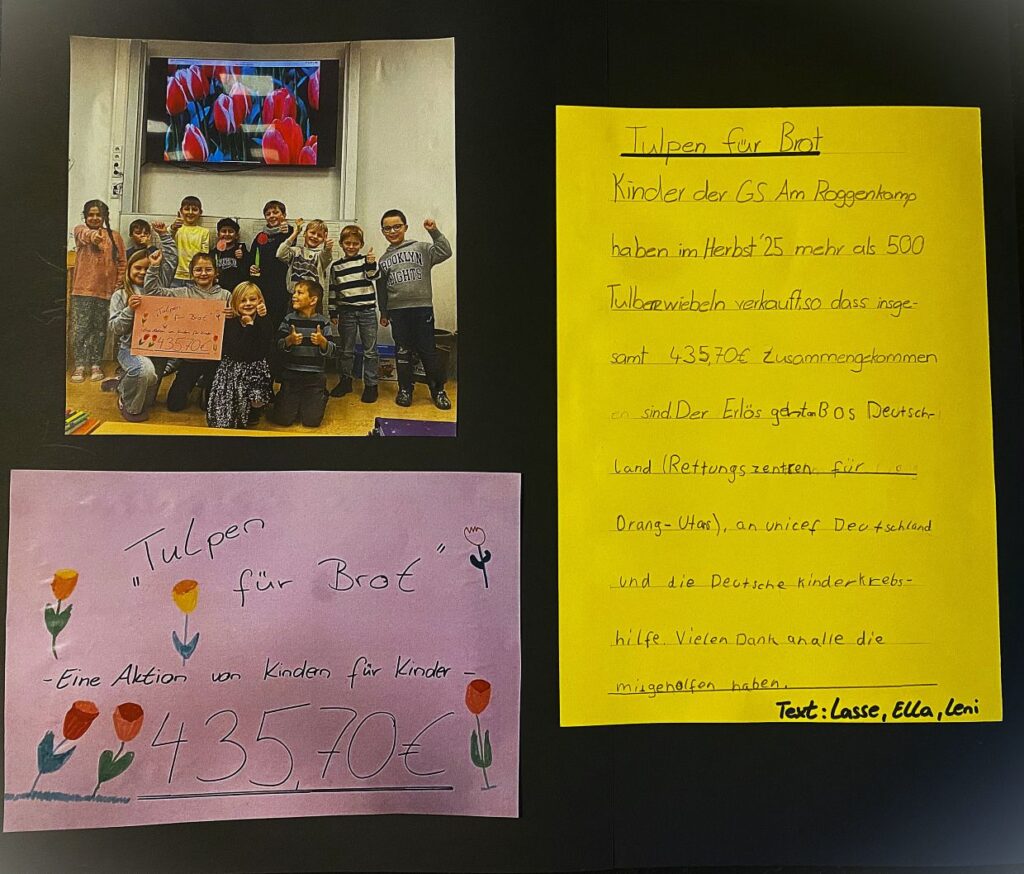 "Tulpen
für Brot"
- Eine Aktion von Kindern für Kinder -
435,70€
BROOKLYN
"Tulpen
für Brot"
- Eine Aktion von Kindern für Kinder -
435,70€
Tulpen für Brot
Kinder der GS Am Roggenkamp
haben im Herbst '25 mehr als 500
verkauft, so dass insge-
samt 435,70€ Zusammengekommen
sind. Der Erlös Bos Deutsch-
land (Rettungszentren für
Orang-Utas), an unicef Deutschland
und die Deutsche kinderkrebs-
hilfe. Vielen Dank an alle die
mitgeholfen haben.
Text: Lasse, Ella, Leni